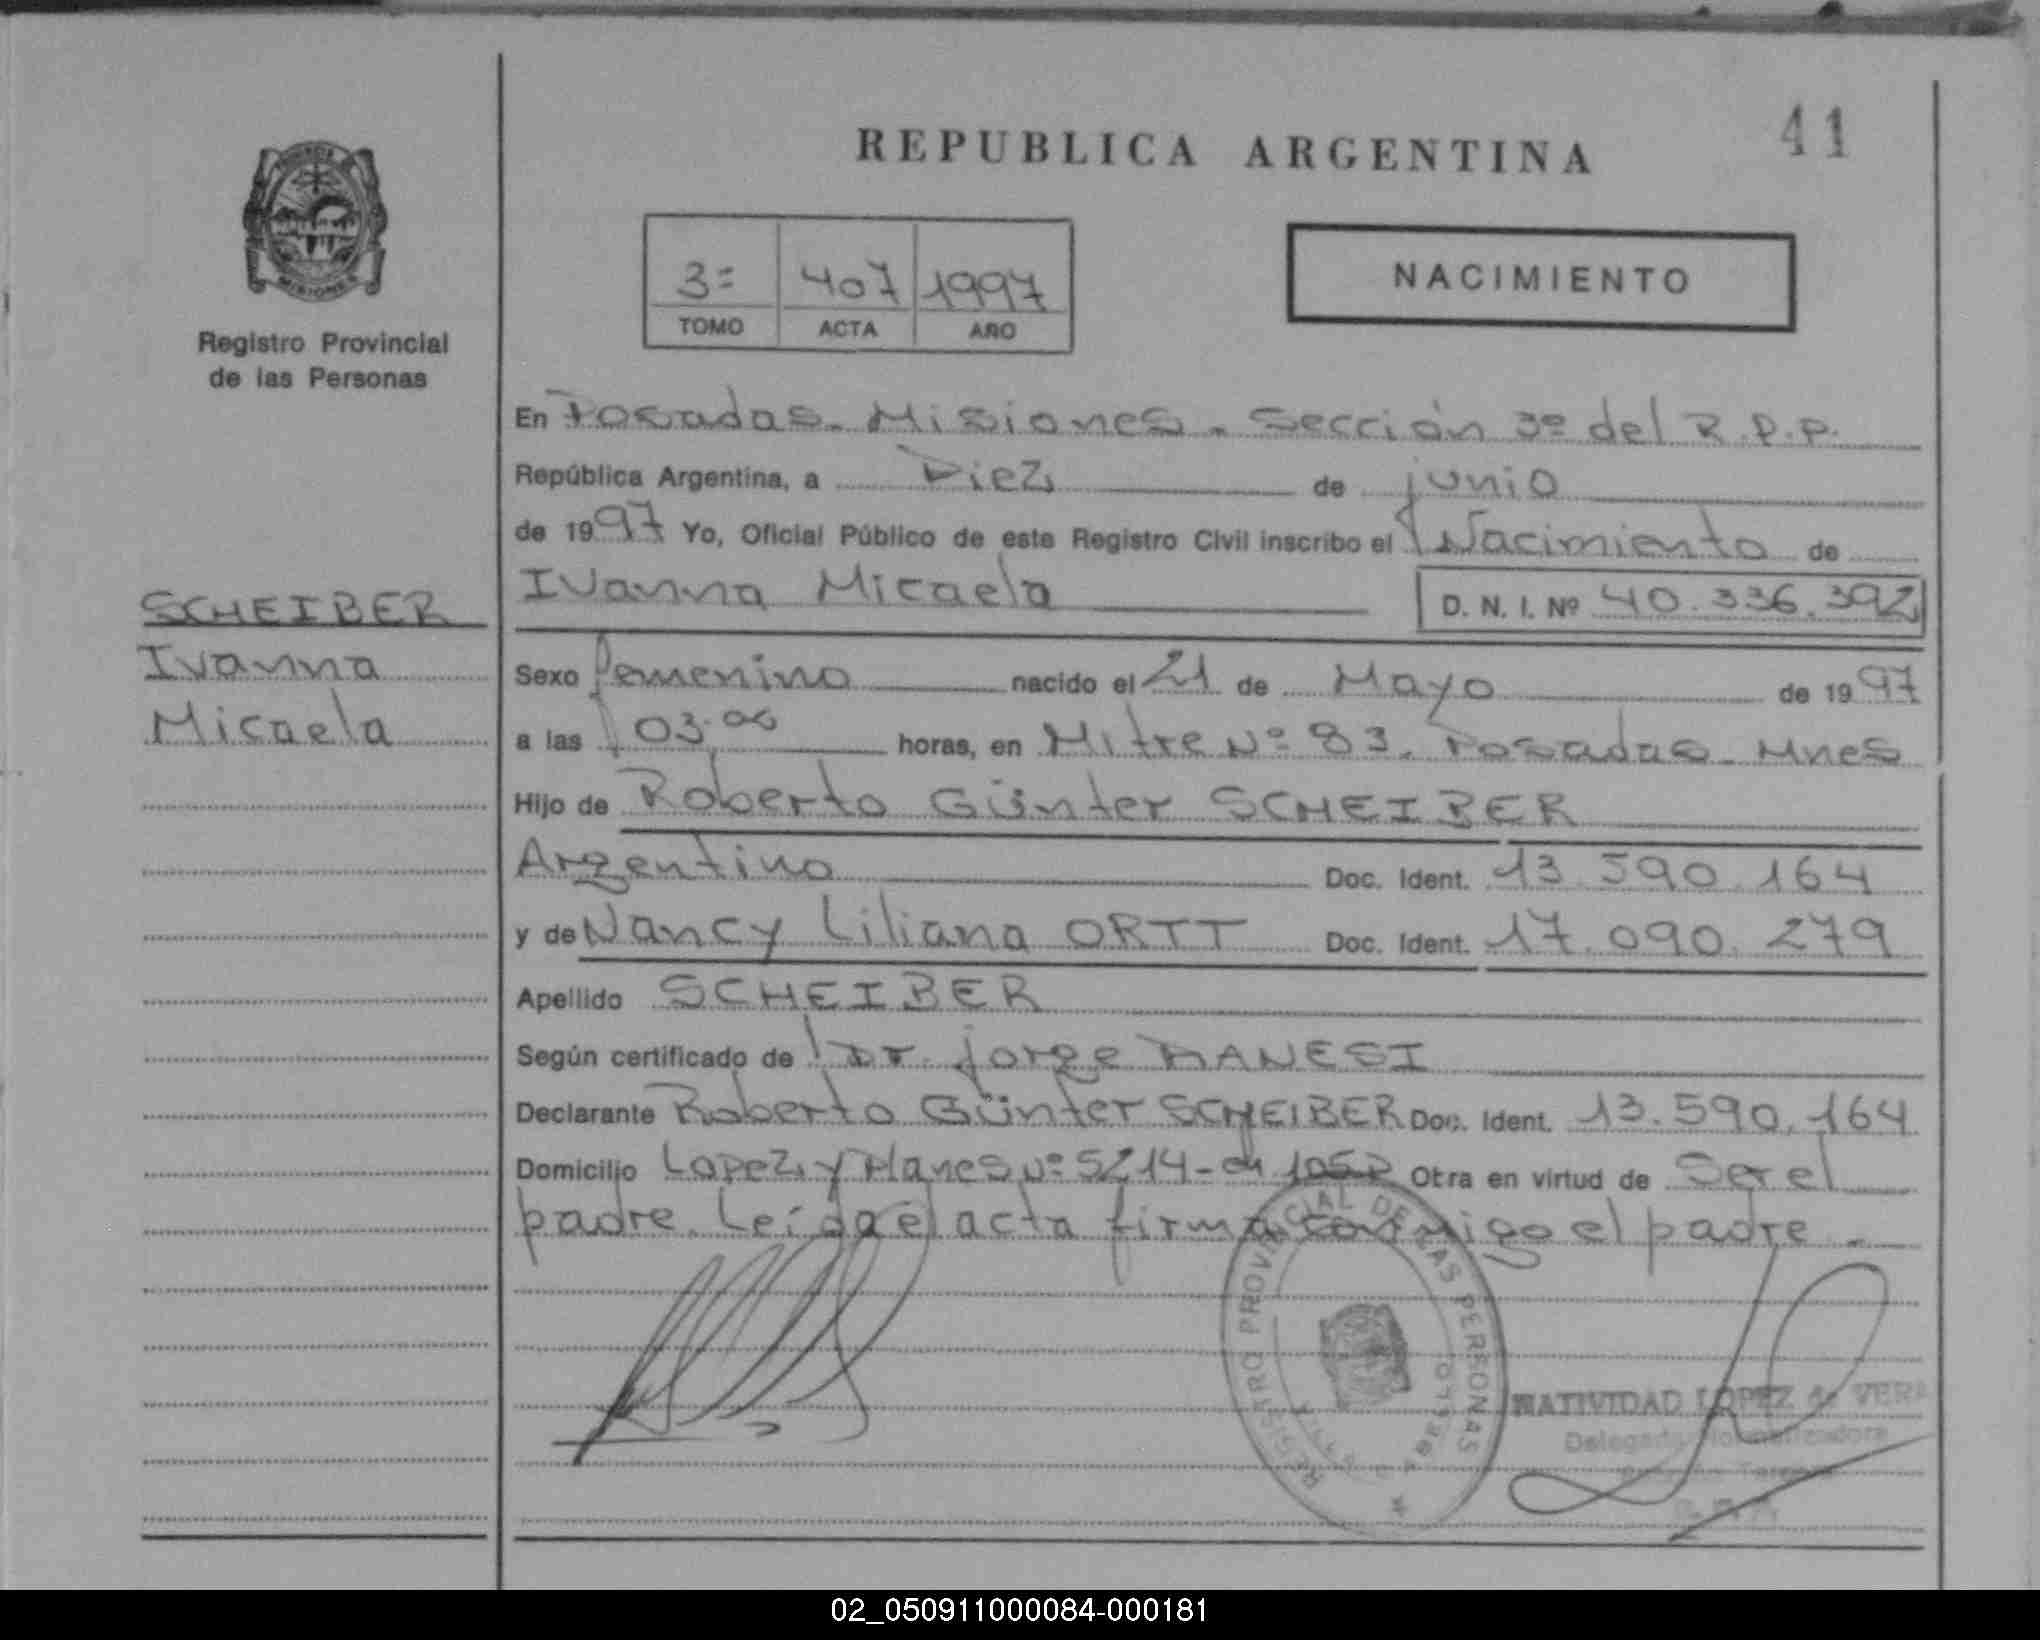 REPUBLICA ARGENTINA
41
PROVINCIA DE
MISIONES
Registro Provincial
de las Personas
3º 407 1997
TOMO ACTA AÑO
NACIMIENTO
En Posadas - Misiones - Sección 3º del R.P.P.
República Argentina, a Diez de junio
de 1997 Yo, Oficial Público de este Registro Civil inscribo el Nacimiento de
Ivanna Micaela D. N. I. Nº 40.336.392
SCHEIBER
Ivanna
Micaela
Sexo femenino nacido el 21 de Mayo de 1997
a las 03,00 horas, en Mitre Nº 83. Posadas - Mnes
Hijo de Roberto Günter SCHEIBER
Argentino Doc. Ident. 13.590.164
y de Nancy Liliana ORTT Doc. Ident. 17.090.279
Apellido SCHEIBER
Según certificado de Dr. Jorge MANESI
Declarante Roberto Günter SCHEIBER Doc. Ident. 13.590.164
Domicilio Lopez y Planes Nº 5214 - Otra en virtud de Ser el
padre. Leída el acta firma conmigo el padre.-
REGISTRO PROVINCIAL DE LAS PERSONAS
NATIVIDAD LOPEZ de VERA
Delegada Normalizadora
02_050911000084-000181